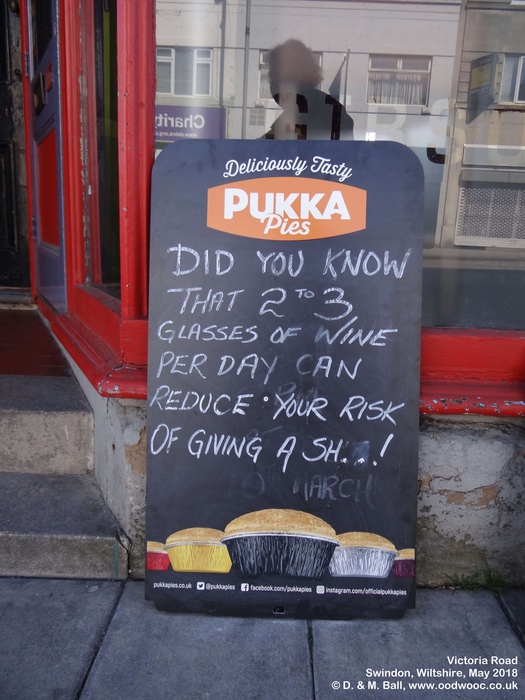 Charity
Deliciously Tasty
PUKKA
Pies
DID YOU KNOW
THAT 2 TO 3
GLASSES OF WINE
PER DAY CAN
REDUCE YOUR RISK
OF GIVING A SH...!
MARCH
pukkapies.co.uk @pukkapies facebook.com/pukkapies instagram.com/officialpukkapies
Victoria Road
Swindon, Wiltshire, May 2018
© D. & M. Ball, www.oodwooc.co.uk